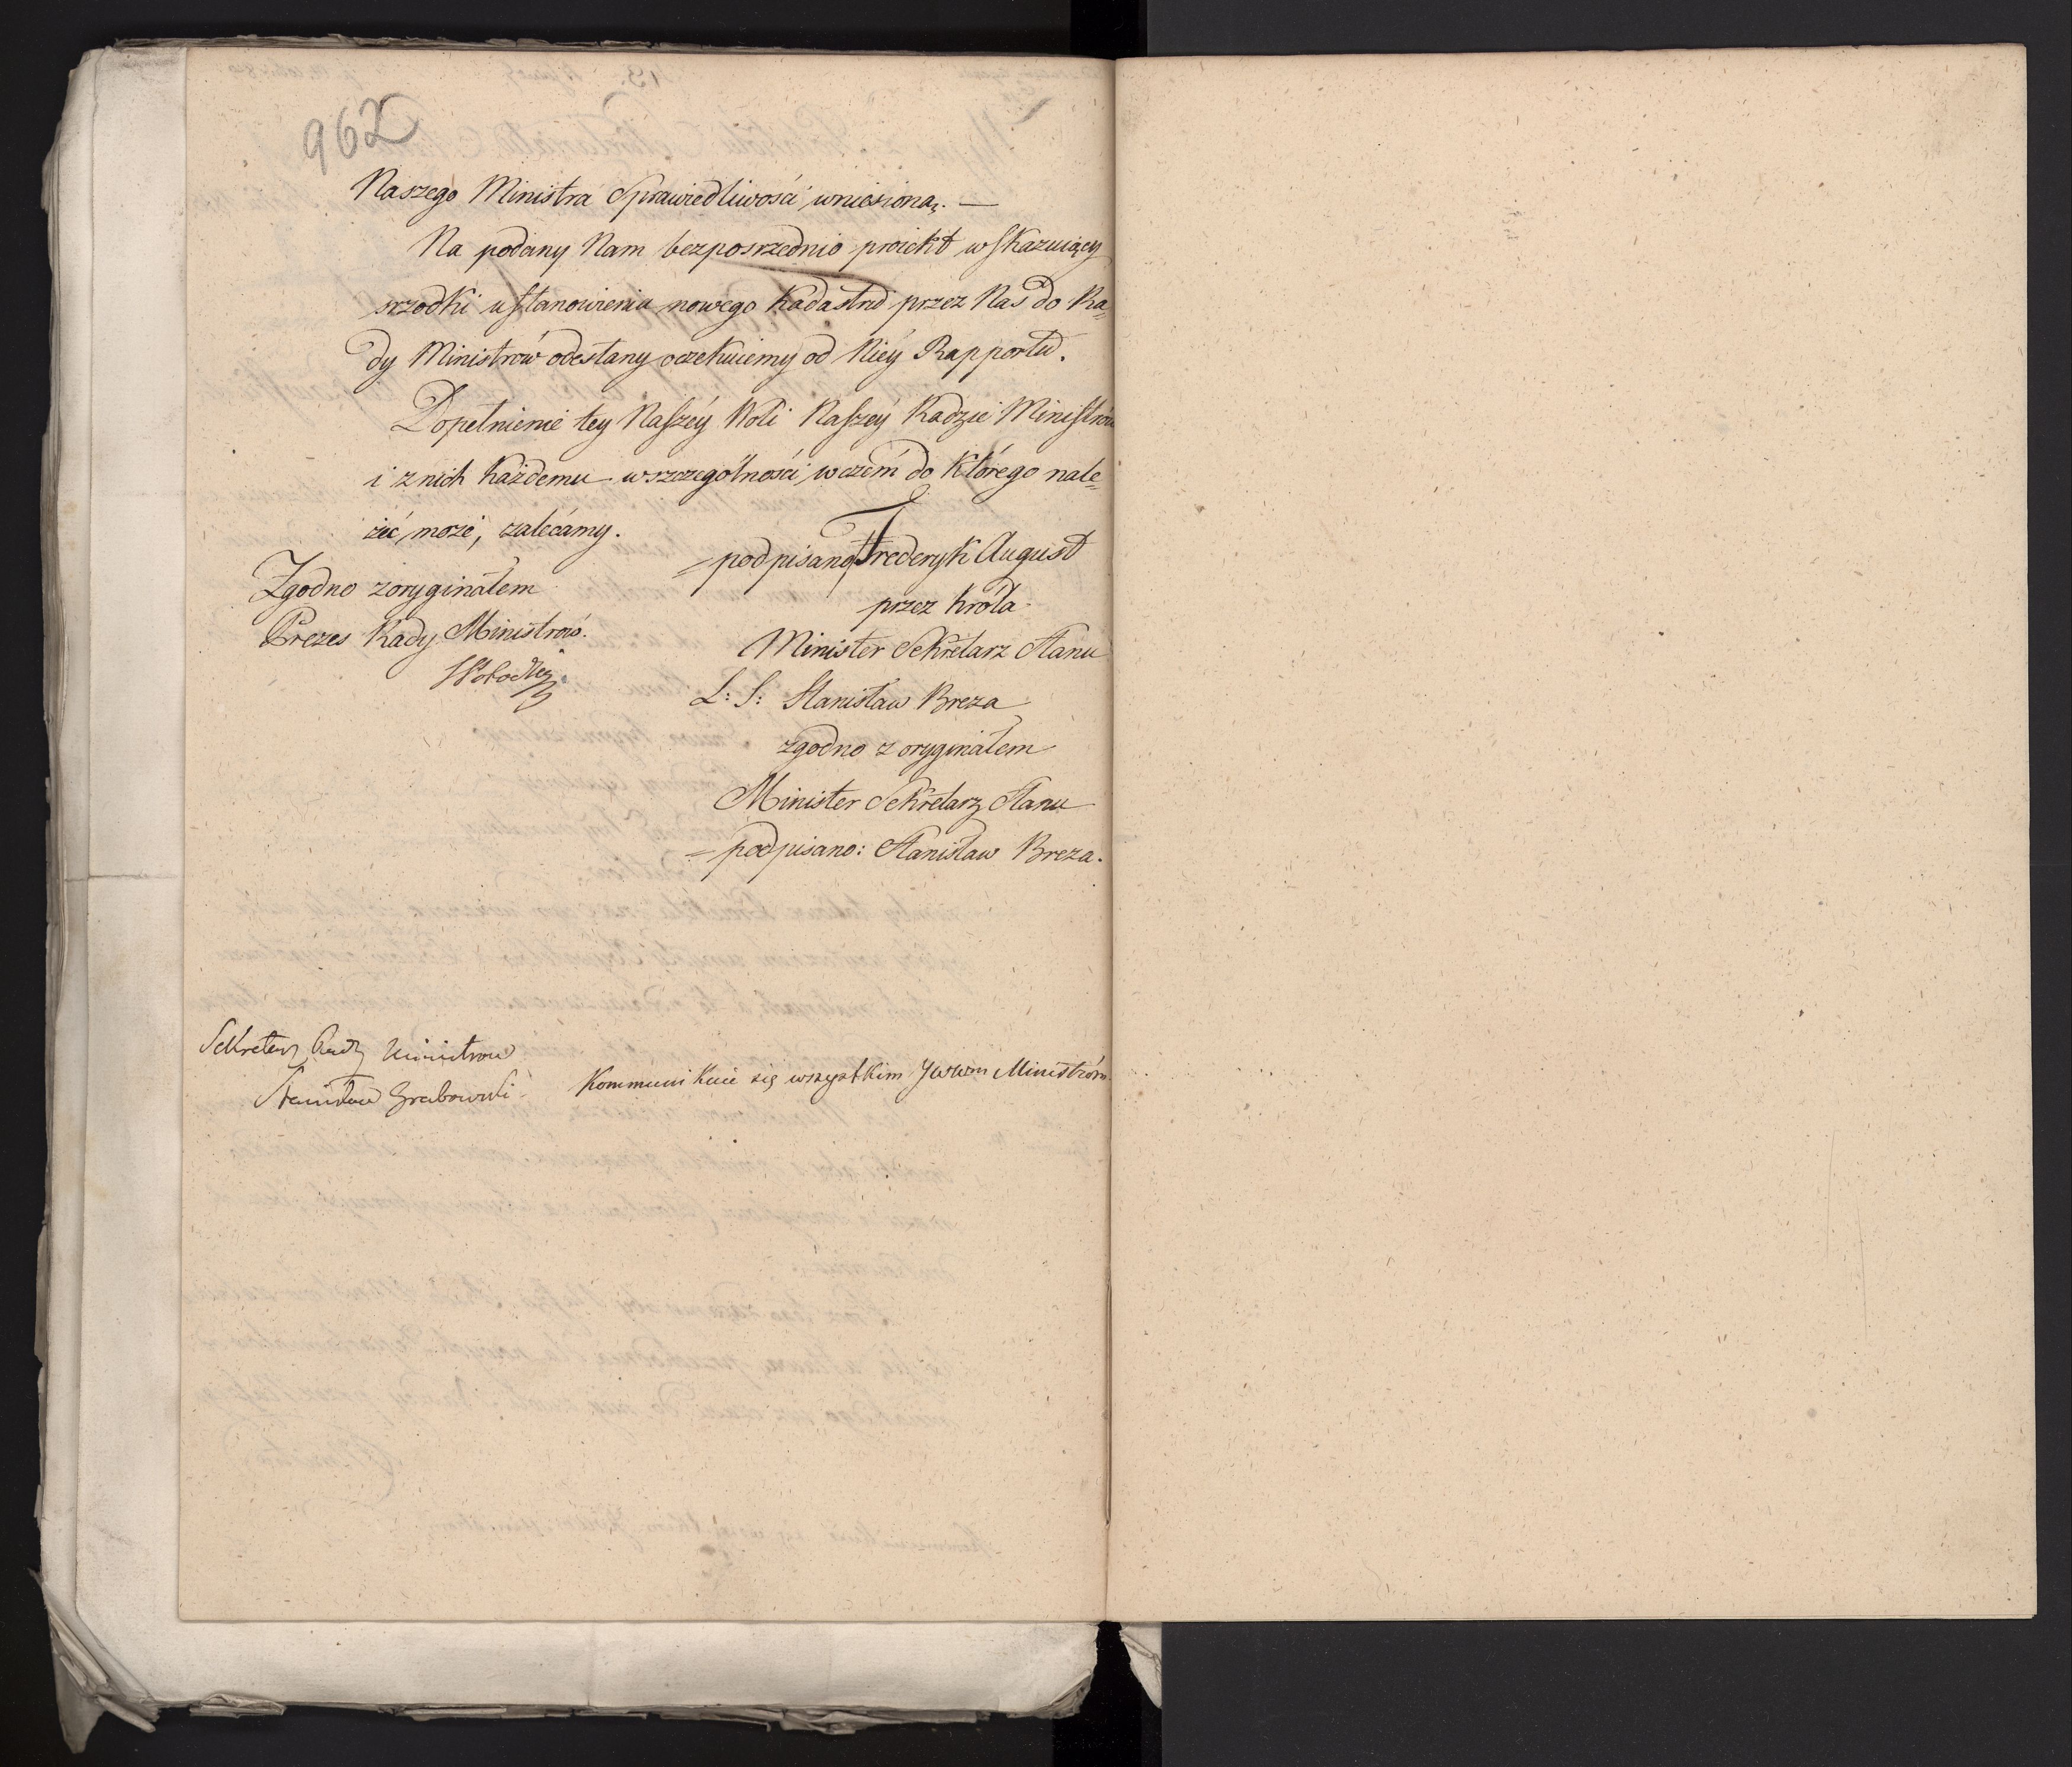 962
Naszego Ministra Sprawiedliwości wniesioną. —
Na podany Nam bezposrzednio proiekt wskazuiący
srzodki ustanowienia nowego Kadastru przez Nas do Ra=
dy Ministrów odesłany oczekuiemy od Niéy Rapportu.
Dopełnienie tey Naszéy Woli Naszéy Radzie Ministrów
i z nich każdemu w szczególności w czém do którego nale=
żéć może, zalecamy.
= podpisano Frederyk August
przez Króla
Minister Sekretarz Stanu
L: S: Stanisław Breza
zgodno z oryginałem
Minister Sekretarz Stanu
= podpisano: Stanisław Breza.
Zgodno z oryginałem
Prezes Rady Ministrów.
Sekretarz Rady Ministrow
Stanisław Grabowski.
Kommunikuie się wszystkim JWWm Ministróm.